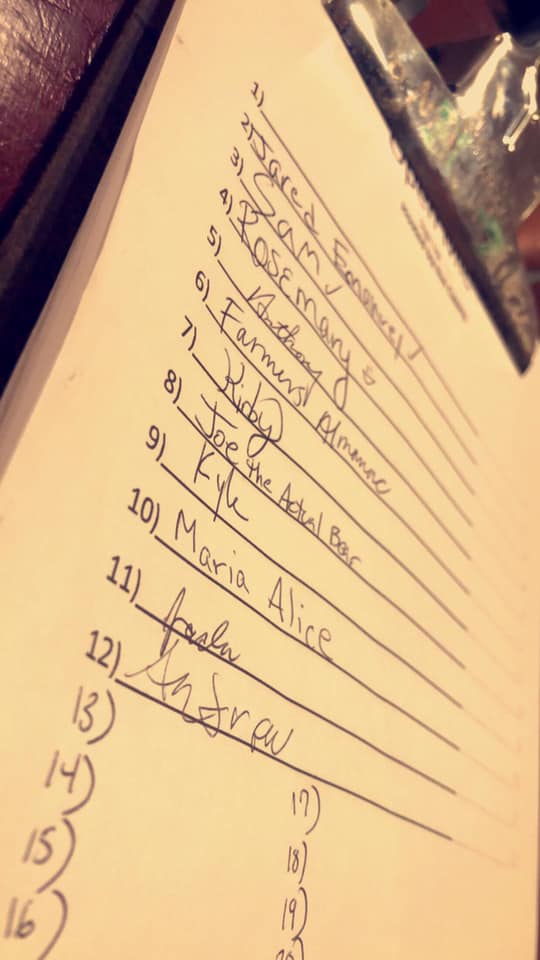 1)
2) Jared
3) Sam
4) Rosemary
5) Anthony
6) Farmers Almanac
7) Kirby
8) Joe the Actual Bear
9) Kyle
10) Maria Alice
11)
12) Andrew
13)
14)
15)
16)
17)
18)
19)
20)